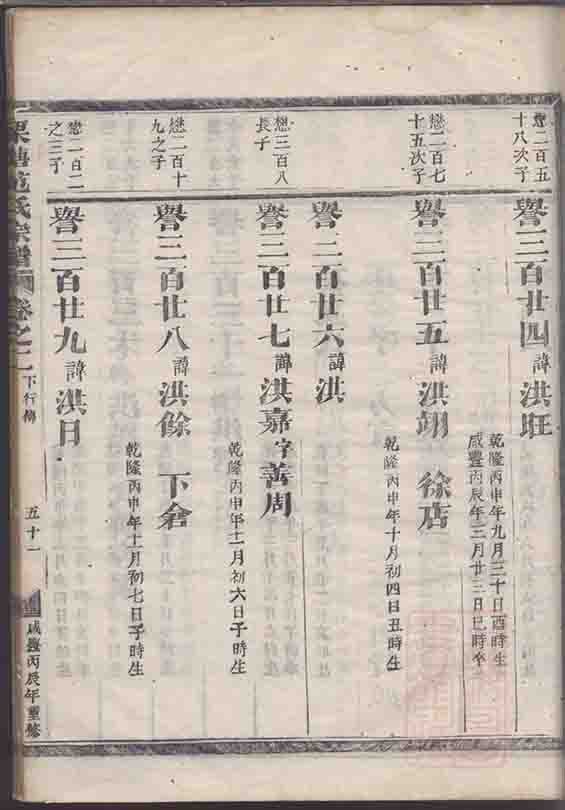 懋二百五
十八次子
譽三百廿四諱洪旺
乾隆丙申年九月三十日酉時生
咸豐丙辰年三月廿三月巳時卒
懋二百七
十五次子
譽三百廿五諱洪翊 徐店
乾隆丙申年十月初四日丑時生
譽三百廿六諱洪
懋三百八
長子
譽三百廿七諱洪嘉字善周
乾隆丙申年十一月初六日子時生
懋二百十
九之子
譽三百廿八諱洪馀 下倉
乾隆丙申年十二月初七日子時生
懋一百二
之三子
譽三百廿九諱洪日
氏宗譜 卷之二 下行傳 五十一 咸豐丙辰年重修